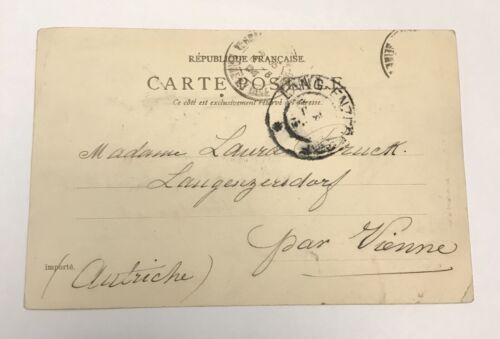 RÉPUBLIQUE FRANÇAISE.
CARTE POSTALE
Ce côté est exclusivement réservé à l'adresse.
Madame Laura
Langenzersdorf
par Vienne
importé.
(Autriche)